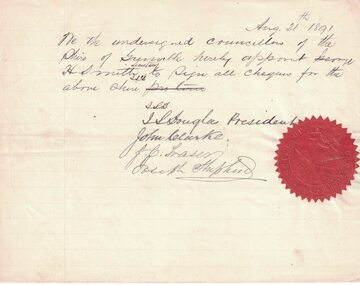 Aug. 21th 1891
We the undersigned councillors of the
Shire of Grenville hereby appoint George
H Smith Secretary to Sign all cheques for the
above Shire
J S Douglas President
John Clarke
J C Fraser
Joseph Shepherd